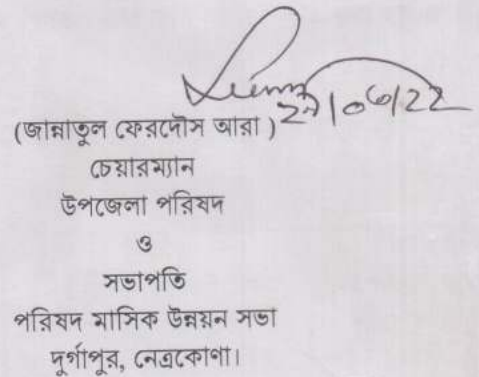 (জান্নাতুল ফেরদৌস আরা)
চেয়ারম্যান
উপজেলা পরিষদ
ও
সভাপতি
পরিষদ মাসিক উন্নয়ন সভা
দুর্গাপুর, নেত্রকোণা।